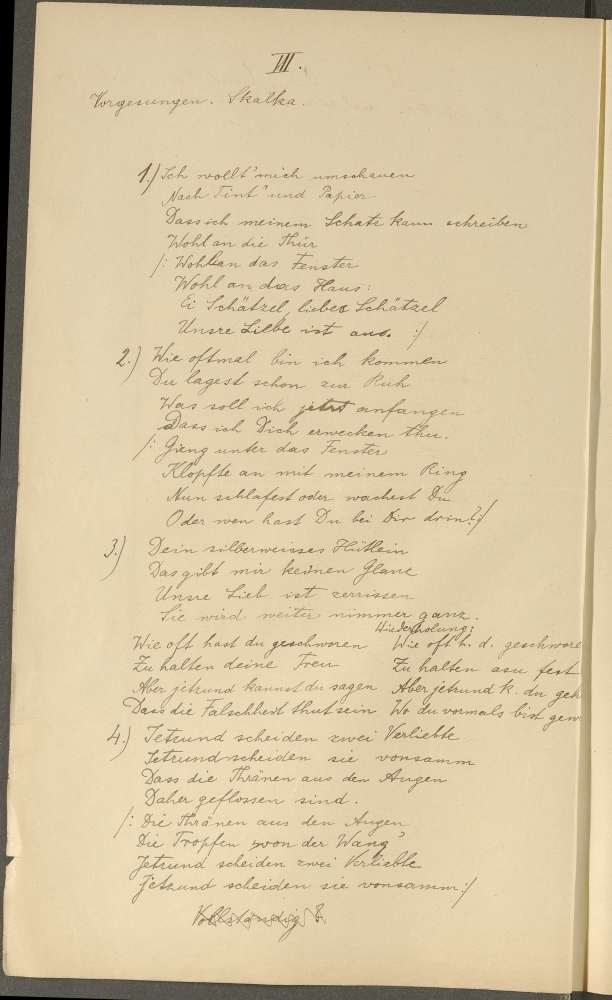 III.
Vorgesungen. Skalka.
1.) Ich wollt' mich umschauen
Nach Tint' und Papier
Dass ich meinem Schatz kann schreiben
Wohl an die Thür
/: Wohl an das Fenster
Wohl an das Haus:
Ei Schätzel, liebes Schätzel
Unsre Liebe ist aus. :/
2.) Wie oftmal bin ich kommen
Du lagest schon zur Ruh
Was soll ich jetzt anfangen
Dass ich Dich erwecken thu.
/: Gieng unter das Fenster
Klopfte an mit meinem Ring
Nun schlafest oder wachest Du
Oder wen hast Du bei Dir drin? :/
3.) Dein silberweisses Hütlein
Das gibt mir keinen Glanz
Unsre Lieb ist zerrissen
Sie wird weiter nimmer ganz.
Wiederholung:
Wie oft hast du geschworen Wie oft h. d. geschwore
Zu halten deine Treu Zu halten fest
Aber jetzund kannst du sagen Aber jetzund k. du geh
Dass die Falschheit thut sein Wo du vormals bist gew
4.) Jetzund scheiden zwei Verliebte
Jetzund scheiden sie vonsamm
Dass die Thränen aus den Augen
Daher geflossen sind.
/: Die Thränen aus den Augen
Die Tropfen von der Wang'
Jetzund scheiden zwei Verliebte
Jetzund scheiden sie vonsamm :/
Vollständig